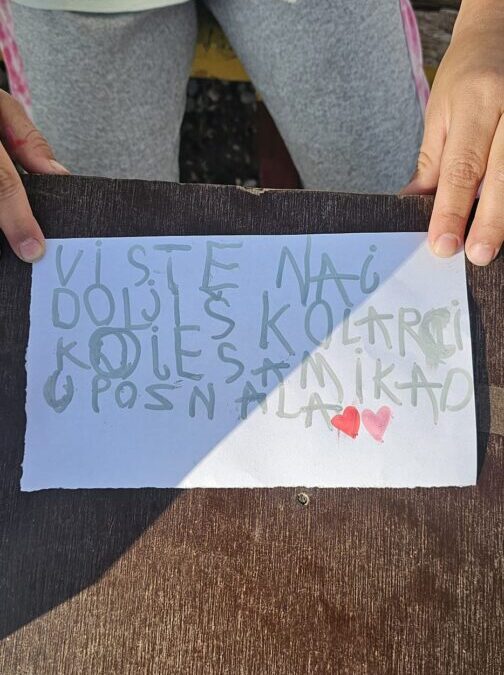 ViSTE NAi
DOLJIS KOLARCi
KOIESAMiKAD
UPOSNALA